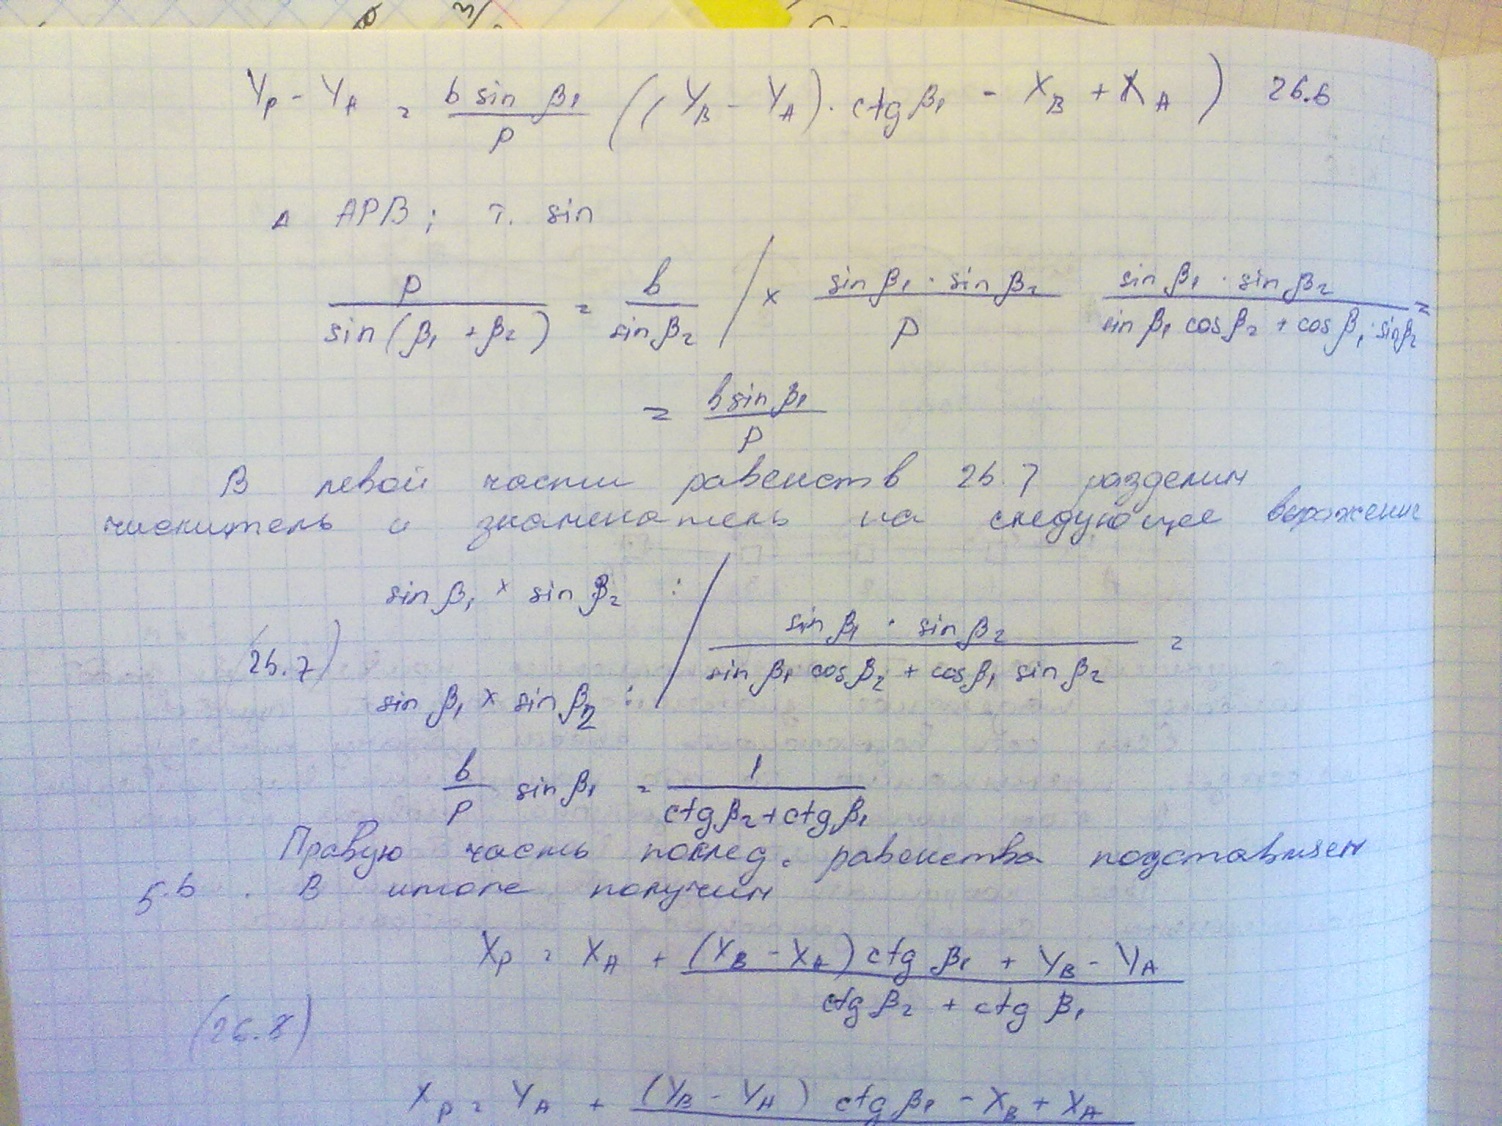 Yp - YA = b sin β1 / p ((YB - YA) · ctg β1 - XB + XA) 26.6
Δ APB; т. sin
p / sin(β1 + β2) = b / sin β2 / × sin β1 · sin β2 / p sin β1 · sin β2 / sin β1 cos β2 + cos β1 · sin β2 =
= b sin β1 / p
В левой части равенств 26.7 разделим
числитель и знаменатель на следующее выражение
sin β1 × sin β2 : / sin β1 · sin β2 / sin β1 cos β2 + cos β1 sin β2 =
(26.7)
sin β1 × sin β2 :
b / p sin β1 = 1 / ctg β2 + ctg β1
Правую часть послед. равенства подставляем
5.6 . В итоге получим
Xp = XA + (XB - XA) ctg β1 + YB - YA / ctg β2 + ctg β1
(26.8)
Xp = YA + (YB - YA) ctg β1 - XB + XA